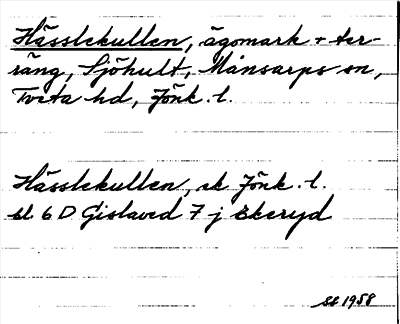 Hässlekullen, ägomark + ter-
räng, Sjöhult, Månsarps sn,
Tveta hd, Jönk. l.
Hässlekullen, ek Jönk. l.
bl. 6 D Gislaved 7 j Ekeryd
1958